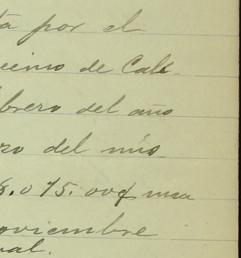 ta por el
cino de Cali
brero del año
ro del mis
8.0 75.00 una
oviembre
ral.